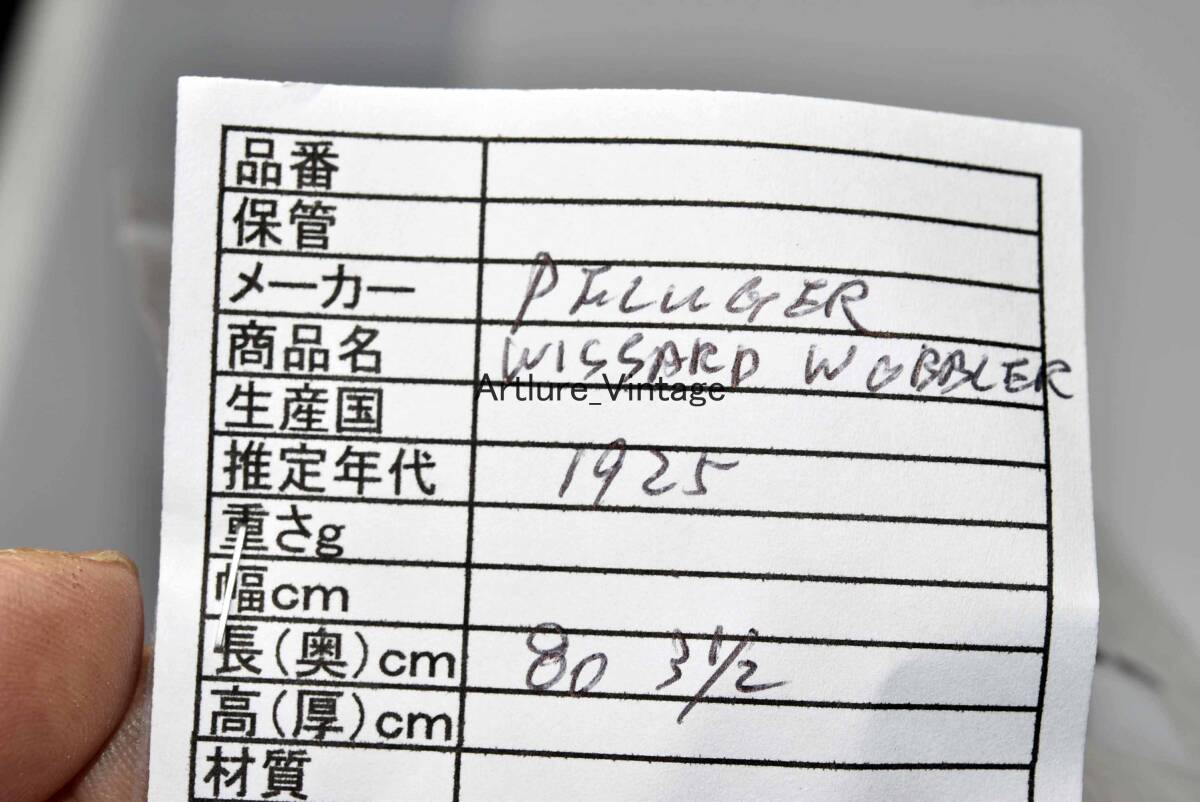 品番
保管
メーカー PFLUGER
商品名 WISSARD WOBBLER
Artlure_Vintage
生産国
推定年代 1925
重さg
幅cm
長(奥)cm 80 3 1/2
高(厚)cm
材質